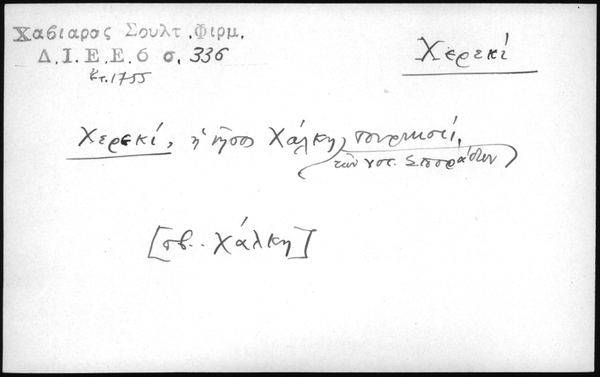 Χαβιαρος Σουλτ.Φιρμ.
Δ.Ι.Ε.Ε.6 σ.336
ἔτ.1755
Χερεκί
Χερεκί, ἡ νῆσος Χάλκη, τουρκιστί,
(τῶν νοτ. Σποράδων)
[πβ.. Χάλκη]